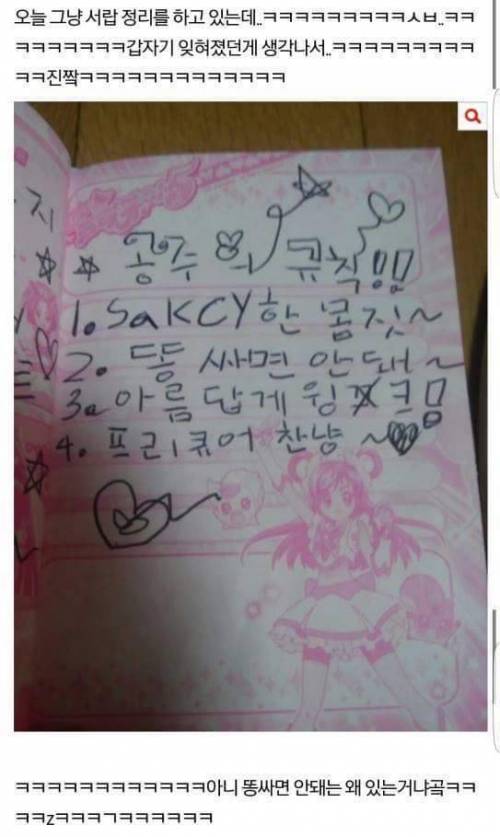 오늘 그냥 서랍 정리를 하고 있는데..ㅋㅋㅋㅋㅋㅋㅋㅋㅋㅅㅂ..ㅋㅋ
ㅋㅋㅋㅋㅋㅋㅋ갑자기 잊혀졌던게 생각나서..ㅋㅋㅋㅋㅋㅋㅋㅋㅋ
ㅋㅋ진짴ㅋㅋㅋㅋㅋㅋㅋㅋㅋㅋㅋㅋㅋ
공주의 규칙!!
1. SaKCY 한 몸짓~
2. 똥 싸면 안돼~
3. 아름답게 윙크!!
4. 프리큐어 찬냥~
ㅋㅋㅋㅋㅋㅋㅋㅋㅋㅋㅋㅋ아니 똥싸면 안돼는 왜 있는거냐곸ㅋㅋ
ㅋㅋzㅋㅋㅋㄱㅋㅋㅋㅋㅋㅋ